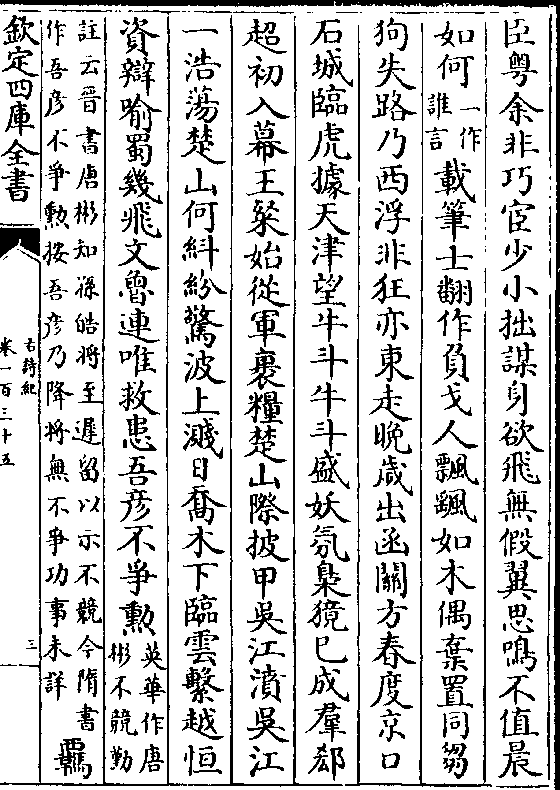 臣粤余非巧宦少小拙謀身欲飛無假翼思鳴不值晨
如何一作誰言載筆士翻作負戈人飄颻如木偶棄置同芻
狗失路乃西浮非狂亦東走晚歲出函關方春度京口
石城臨虎據天津望牛斗牛斗盛妖氛梟獍巳成羣郄
超初入幕王粲始從軍裹糧楚山際披甲吳江濆吳江
一浩蕩楚山何糾紛驚波上濺日喬木下臨雲繫越恒
資辯喻蜀幾飛文魯連唯救患吾彦不爭勲英華作唐彬不競勤
註云晉書唐彬知孫皓將至遲留以示不競今隋書
作吾彦不爭勲按吾彦乃降將無不爭功事未詳
羈
欽定四庫全書
古詩紀
卷一百三十五
三